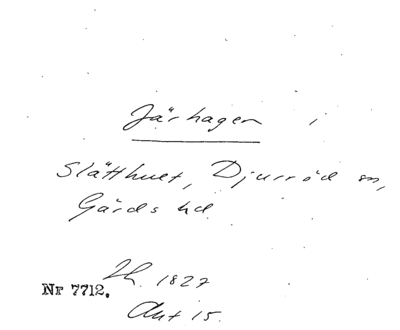 Järhagen i
Slätthult, Djurröd sn,
Gärds hd.
Lh. 1827
Nr 7712.
Akt 15.